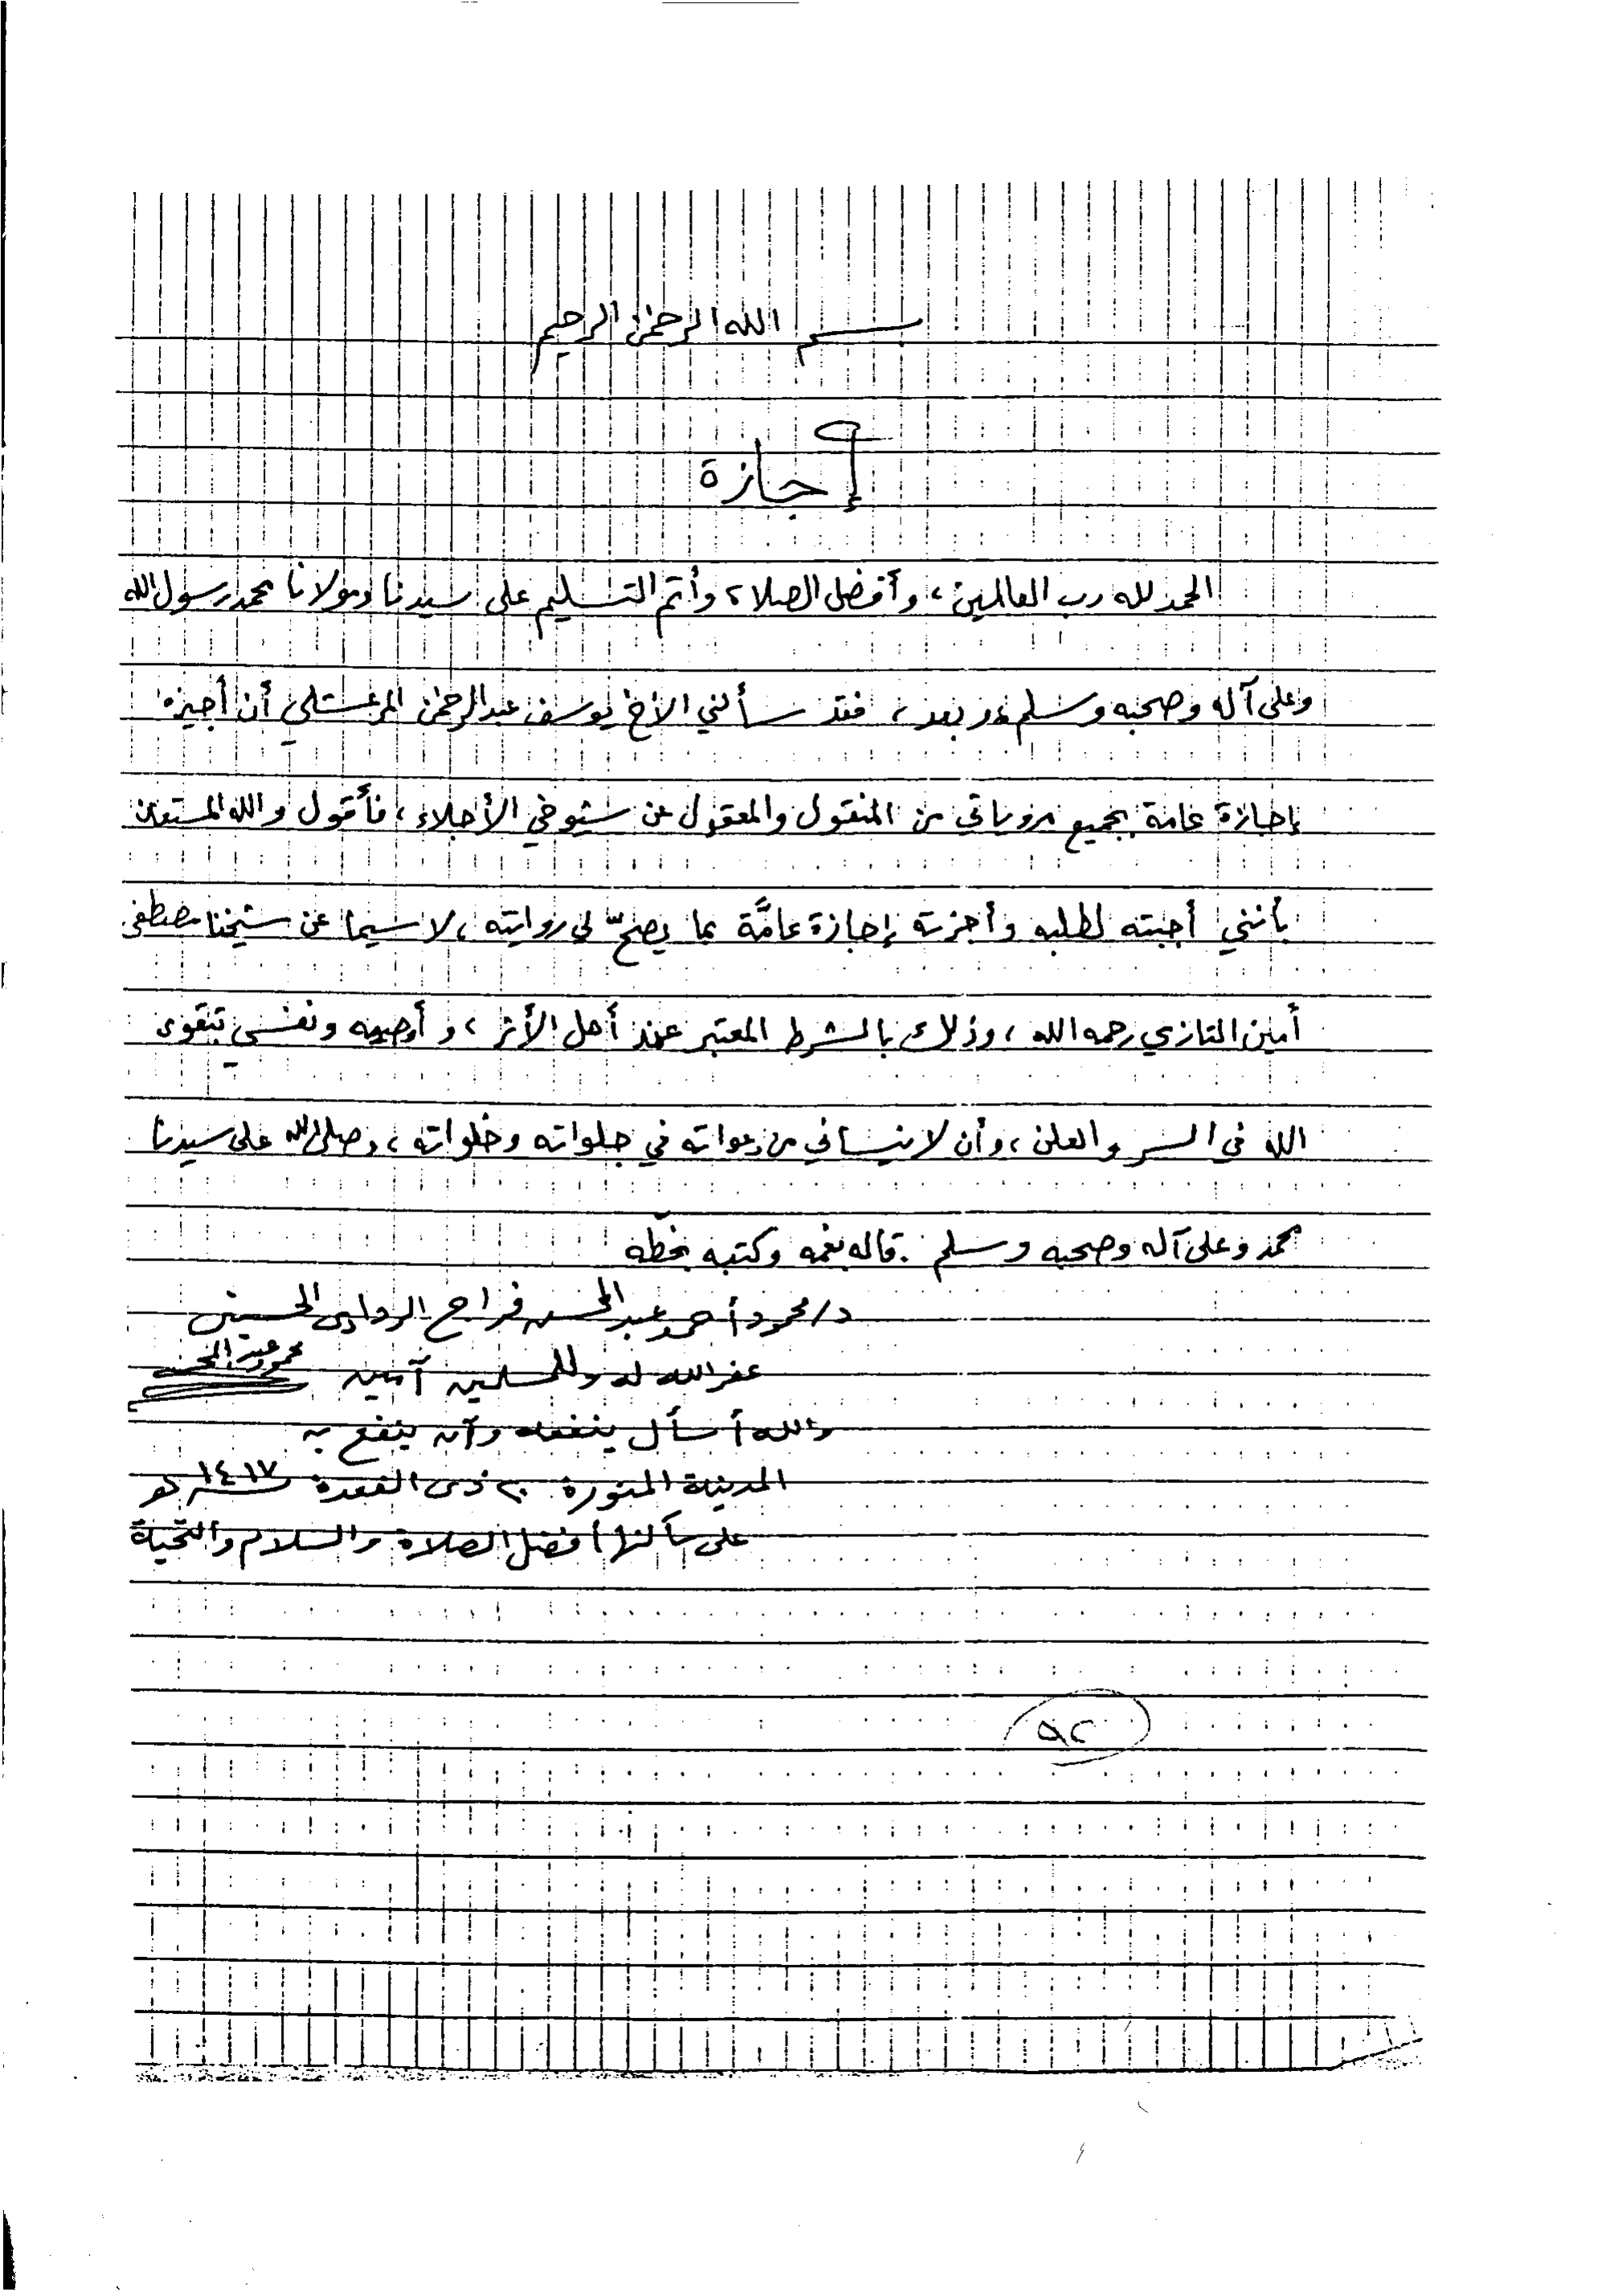 بسم الله الرحمن الرحيم
إجازة
الحمد لله رب العالمين، وأفضل الصلاة وأتم التسليم على سيدنا ومولانا محمد رسول الله
وعلى آله وصحبه وسلم وبعد، فقد سألني الأخ يوسف عبد الرحمن المرعشلي أن أجيزه
إجازة عامة بجميع مروياتي من المنقول والمعقول عن شيوخي الأجلاء، فأقول والله المستعان
بأنني أجبته لطلبه وأجزته إجازة عامَّة بما يصحّ لي روايته، لا سيما عن شيخنا مصطفى
أمين التازي رحمه الله، وذلك بالشرط المعتبر عند أهل الأثر، وأوصيه ونفسي بتقوى
الله في السر والعلن، وأن لا ينساني من دعواته في جلواته وخلواته، وصلى الله على سيدنا
محمد وعلى آله وصحبه وسلم. قاله بفمه وكتبه بخطّه
د/ محمود أحمد عبد المحسن فراج الحسيني
غفر الله له وللمسلمين آمين محمود عبد المحسن
والله أسأل ينفعه وأن ينفع به
المدينة المنورة ٢٠ ذى القعدة سنة ١٤١٧ هـ
على ساكنها أفضل الصلاة والسلام والتحية
٩٢